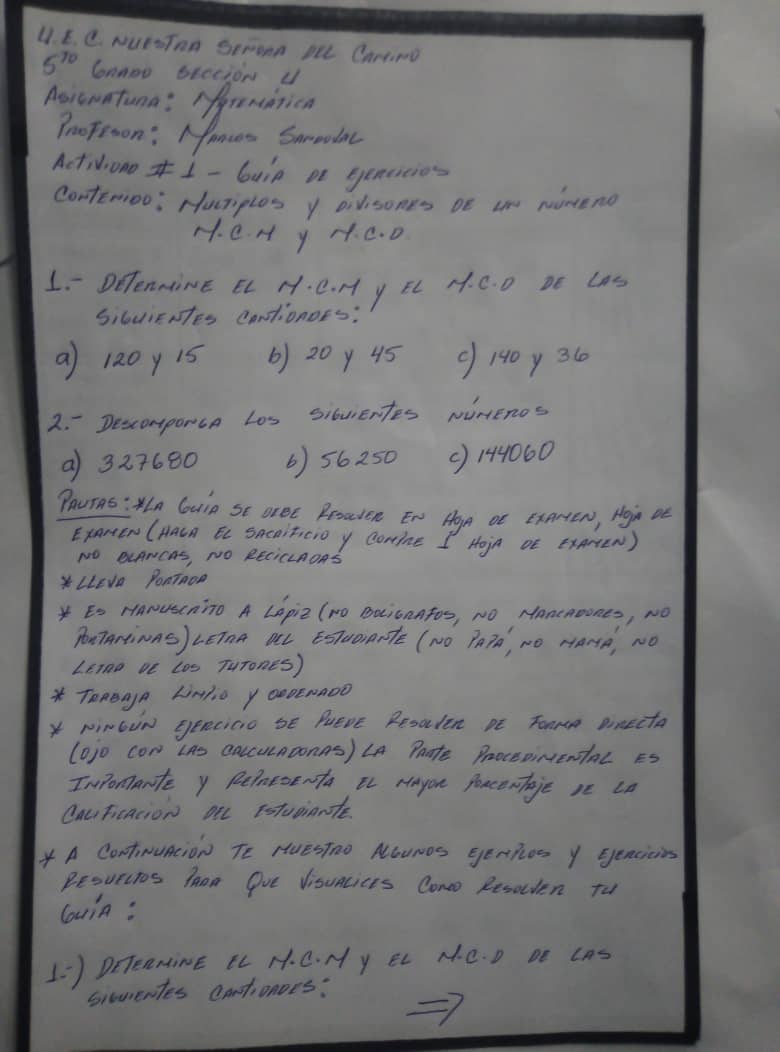 U.E.C. NUESTRA SEÑORA DEL CAMINO
5TO GRADO SECCIÓN U
ASIGNATURA: MATEMÁTICA
PROFESOR: MARCOS SANDOVAL
ACTIVIDAD #1 - GUÍA DE EJERCICIOS
CONTENIDO: MULTIPLOS Y DIVISORES DE UN NÚMERO
M.C.M Y M.C.D.
1.- DETERMINE EL M.C.M Y EL M.C.D DE LAS
SIGUIENTES CANTIDADES:
a) 120 y 15 b) 20 y 45 c) 140 y 36
2.- DESCOMPONGA LOS SIGUIENTES NÚMEROS
a) 327680 b) 56250 c) 144060
PAUTAS: *LA GUÍA SE DEBE RESOLVER EN HOJA DE EXAMEN, HOJA DE
EXAMEN (HAGA EL SACRIFICIO Y COMPRE 1 HOJA DE EXAMEN)
NO BLANCAS, NO RECICLADAS
* LLEVA PORTADA
* ES MANUSCRITO A LÁPIZ (NO BOLIGRAFOS, NO MARCADORES, NO
PORTAMINAS) LETRA DEL ESTUDIANTE (NO PAPÁ, NO MAMÁ, NO
LETRA DE LOS TUTORES)
* TRABAJA LIMPIO Y ORDENADO
* NINGÚN EJERCICIO SE PUEDE RESOLVER DE FORMA DIRECTA
(OJO CON LAS CALCULADORAS) LA PARTE PROCEDIMENTAL ES
IMPORTANTE Y REPRESENTA EL MAYOR PORCENTAJE DE LA
CALIFICACIÓN DEL ESTUDIANTE.
* A CONTINUACIÓN TE MUESTRO ALGUNOS EJEMPLOS Y EJERCICIOS
RESUELTOS PARA QUE VISUALICES COMO RESOLVER TU
GUÍA:
1.-) DETERMINE EL M.C.M Y EL M.C.D DE LAS
SIGUIENTES CANTIDADES:
⇒